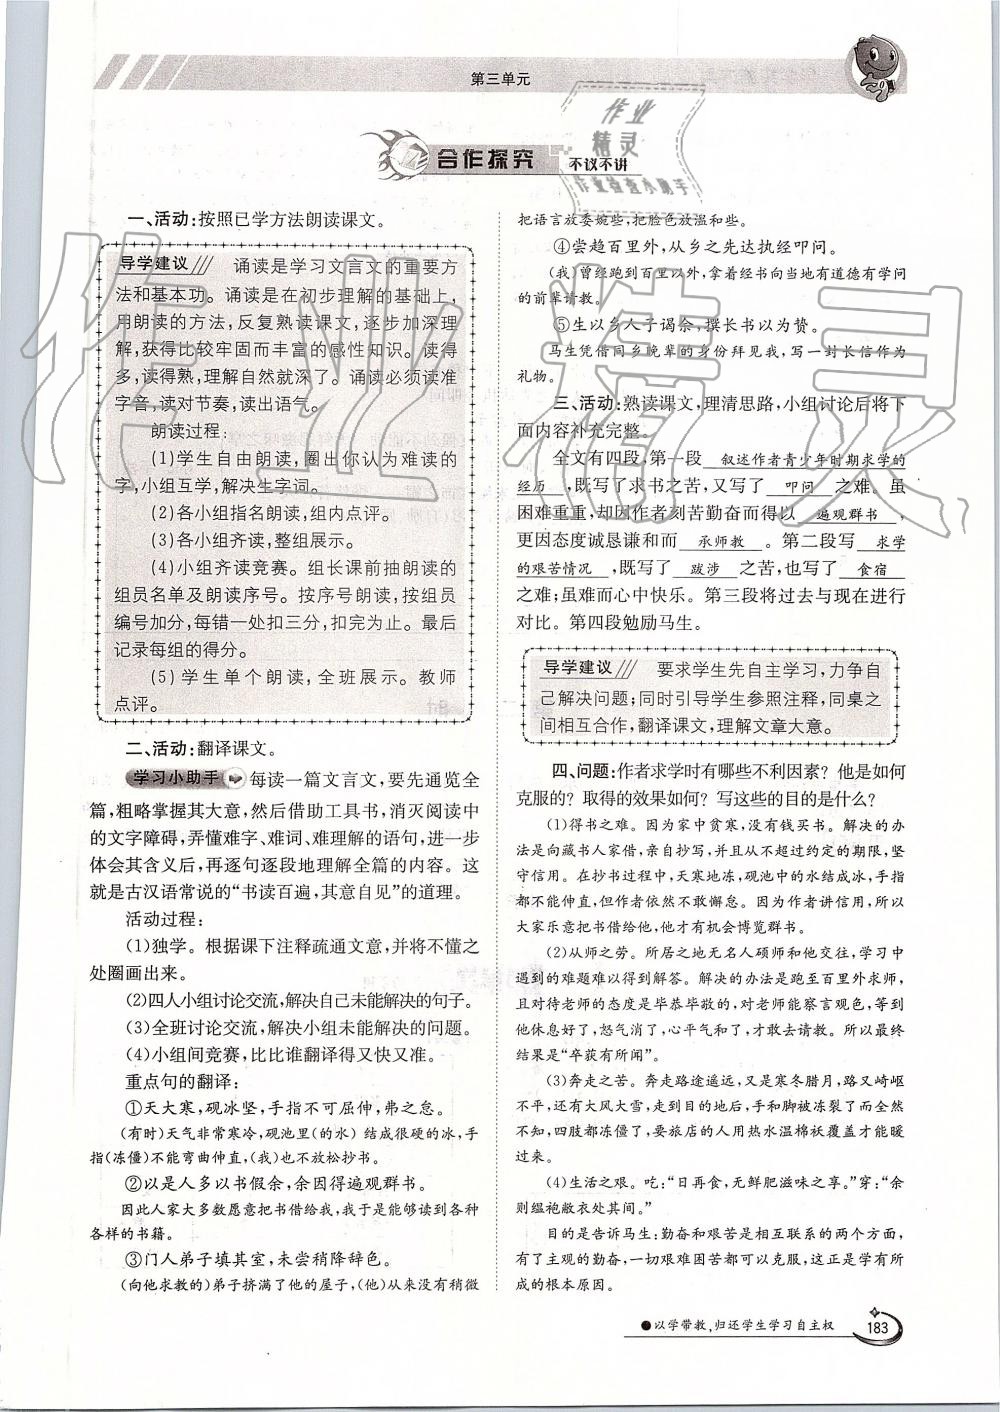 第三单元
作业
精灵
作业检查小助手
合作探究
不议不讲
一、活动:按照已学方法朗读课文。
导学建议 诵读是学习文言文的重要方
法和基本功。诵读是在初步理解的基础上,
用朗读的方法,反复熟读课文,逐步加深理
解,获得比较牢固而丰富的感性知识。读得
多,读得熟,理解自然就深了。诵读必须读准
字音,读对节奏,读出语气。
朗读过程:
(1)学生自由朗读,圈出你认为难读的
字,小组互学,解决生字词。
(2)各小组指名朗读,组内点评。
(3)各小组齐读,整组展示。
(4)小组齐读竞赛。组长课前抽朗读的
组员名单及朗读序号。按序号朗读,按组员
编号加分,每错一处扣三分,扣完为止。最后
记录每组的得分。
(5)学生单个朗读,全班展示。教师
点评。
二、活动:翻译课文。
学习小助手 每读一篇文言文,要先通览全
篇,粗略掌握其大意,然后借助工具书,消灭阅读中
的文字障碍,弄懂难字、难词、难理解的语句,进一步
体会其含义后,再逐句逐段地理解全篇的内容。这
就是古汉语常说的“书读百遍,其意自见”的道理。
活动过程:
(1)独学。根据课下注释疏通文意,并将不懂之
处圈画出来。
(2)四人小组讨论交流,解决自己未能解决的句子。
(3)全班讨论交流,解决小组未能解决的问题。
(4)小组间竞赛,比比谁翻译得又快又准。
重点句的翻译:
①天大寒,砚冰坚,手指不可屈伸,弗之怠。
(有时)天气非常寒冷,砚池里(的水)结成很硬的冰,手
指(冻僵)不能弯曲伸直,(我)也不放松抄书。
②以是人多以书假余,余因得遍观群书。
因此人家大多数愿意把书借给我,我于是能够读到各种
各样的书籍。
③门人弟子填其室,未尝稍降辞色。
(向他求教的)弟子挤满了他的屋子,(他)从来没有稍微
把语言放委婉些,把脸色放温和些。
④尝趋百里外,从乡之先达执经叩问。
(我)曾经跑到百里以外,拿着经书向当地有道德有学问
的前辈请教。
⑤生以乡人子谒余,撰长书以为贽。
马生凭借同乡晚辈的身份拜见我,写一封长信作为
礼物。
三、活动:熟读课文,理清思路,小组讨论后将下
面内容补充完整:
全文有四段,第一段 叙述作者青少年时期求学的
经历 ,既写了求书之苦,又写了 叩问 之难。虽
困难重重,却因作者刻苦勤奋而得以 遍观群书 ,
更因态度诚恳谦和而 承师教 。第二段写 求学
的艰苦情况 ,既写了 跋涉 之苦,也写了 食宿
之难;虽难而心中快乐。第三段将过去与现在进行
对比。第四段勉励马生。
导学建议 要求学生先自主学习,力争自
己解决问题;同时引导学生参照注释,同桌之
间相互合作,翻译课文,理解文章大意。
四、问题:作者求学时有哪些不利因素?他是如何
克服的?取得的效果如何?写这些的目的是什么?
(1)得书之难。因为家中贫寒,没有钱买书。解决的办
法是向藏书人家借,亲自抄写,并且从不超过约定的期限,坚
守信用。在抄书过程中,天寒地冻,砚池中的水结成冰,手指
都不能伸直,但作者依然不敢懈怠。因为作者讲信用,所以
大家乐意把书借给他,他才有机会博览群书。
(2)从师之劳。所居之地无名人硕师和他交往,学习中
遇到的难题难以得到解答。解决的办法是跑至百里外求师,
且对待老师的态度是毕恭毕敬的,对老师能察言观色,等到
他休息好了,怒气消了,心平气和了,才敢去请教。所以最终
结果是“卒获有所闻”。
(3)奔走之苦。奔走路途遥远,又是寒冬腊月,路又崎岖
不平,还有大风大雪,走到目的地后,手和脚被冻裂了全然不
知,四肢都冻僵了,要旅店的人用热水温棉袄覆盖才能暖
过来。
(4)生活之艰。吃:“日再食,无鲜肥滋味之享。”穿:“余
则缊袍敝衣处其间。”
目的是告诉马生:勤奋和艰苦是相互联系的两个方面,
有了主观的勤奋,一切艰难困苦都可以克服,这是学有所
成的根本原因。
●以学带教,归还学生学习自主权
183
作业精灵